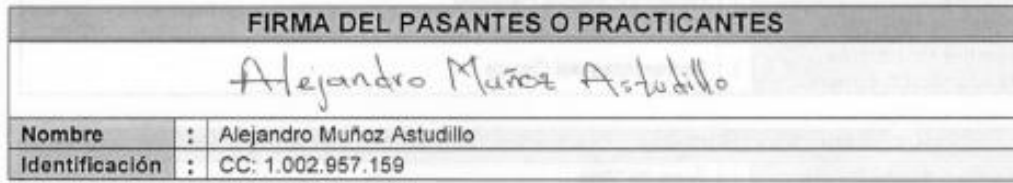 FIRMA DEL PASANTES O PRACTICANTES
Alejandro Muñoz Astudillo
Nombre : Alejandro Muñoz Astudillo
Identificación : CC: 1.002.957.159